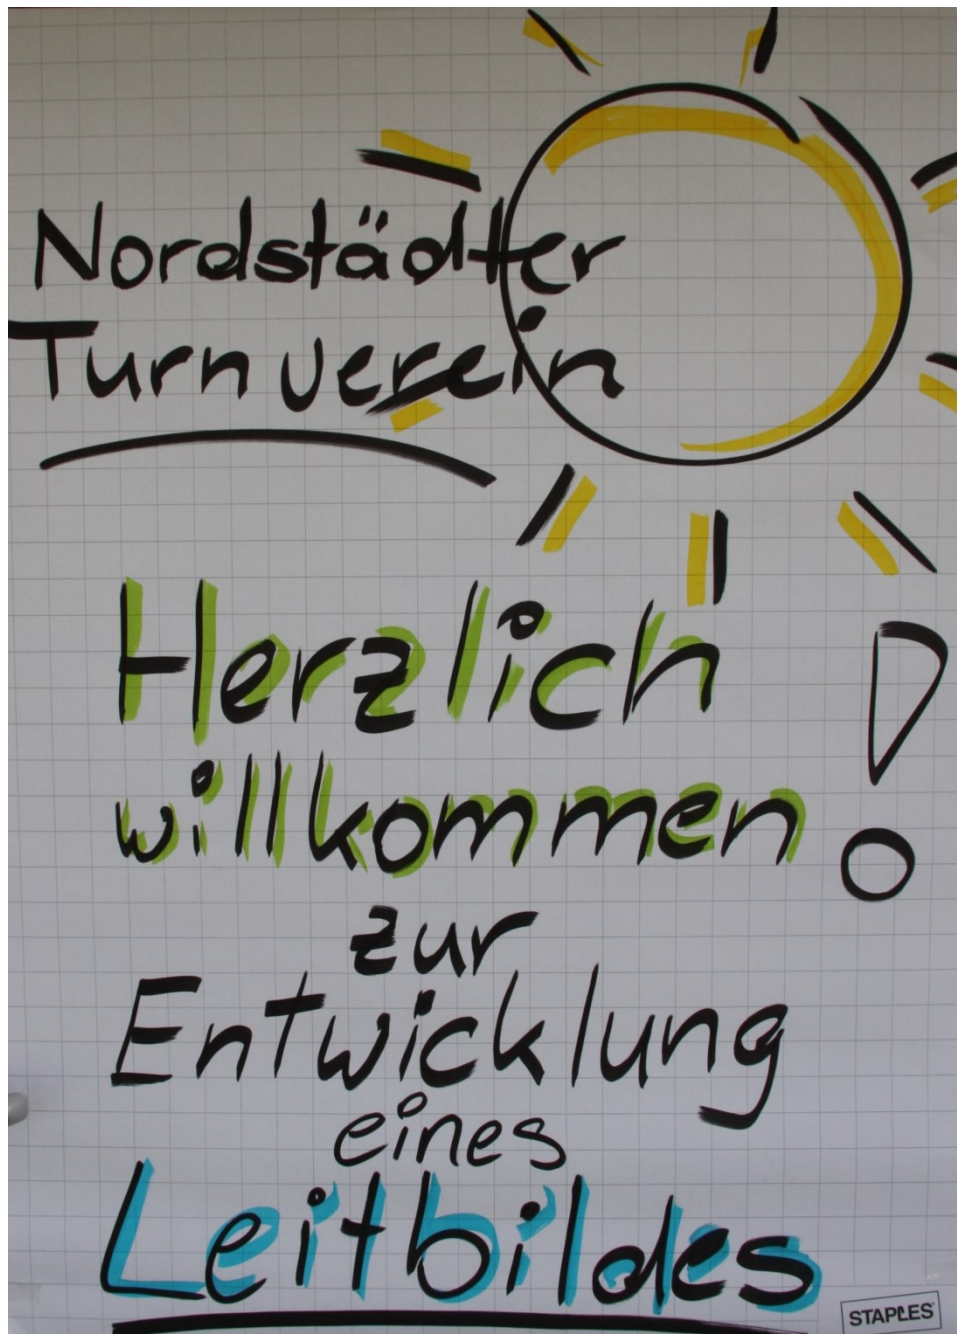 Nordstädter
Turnverein
Herzlich
willkommen !
zur
Entwicklung
eines
Leitbildes
STAPLES